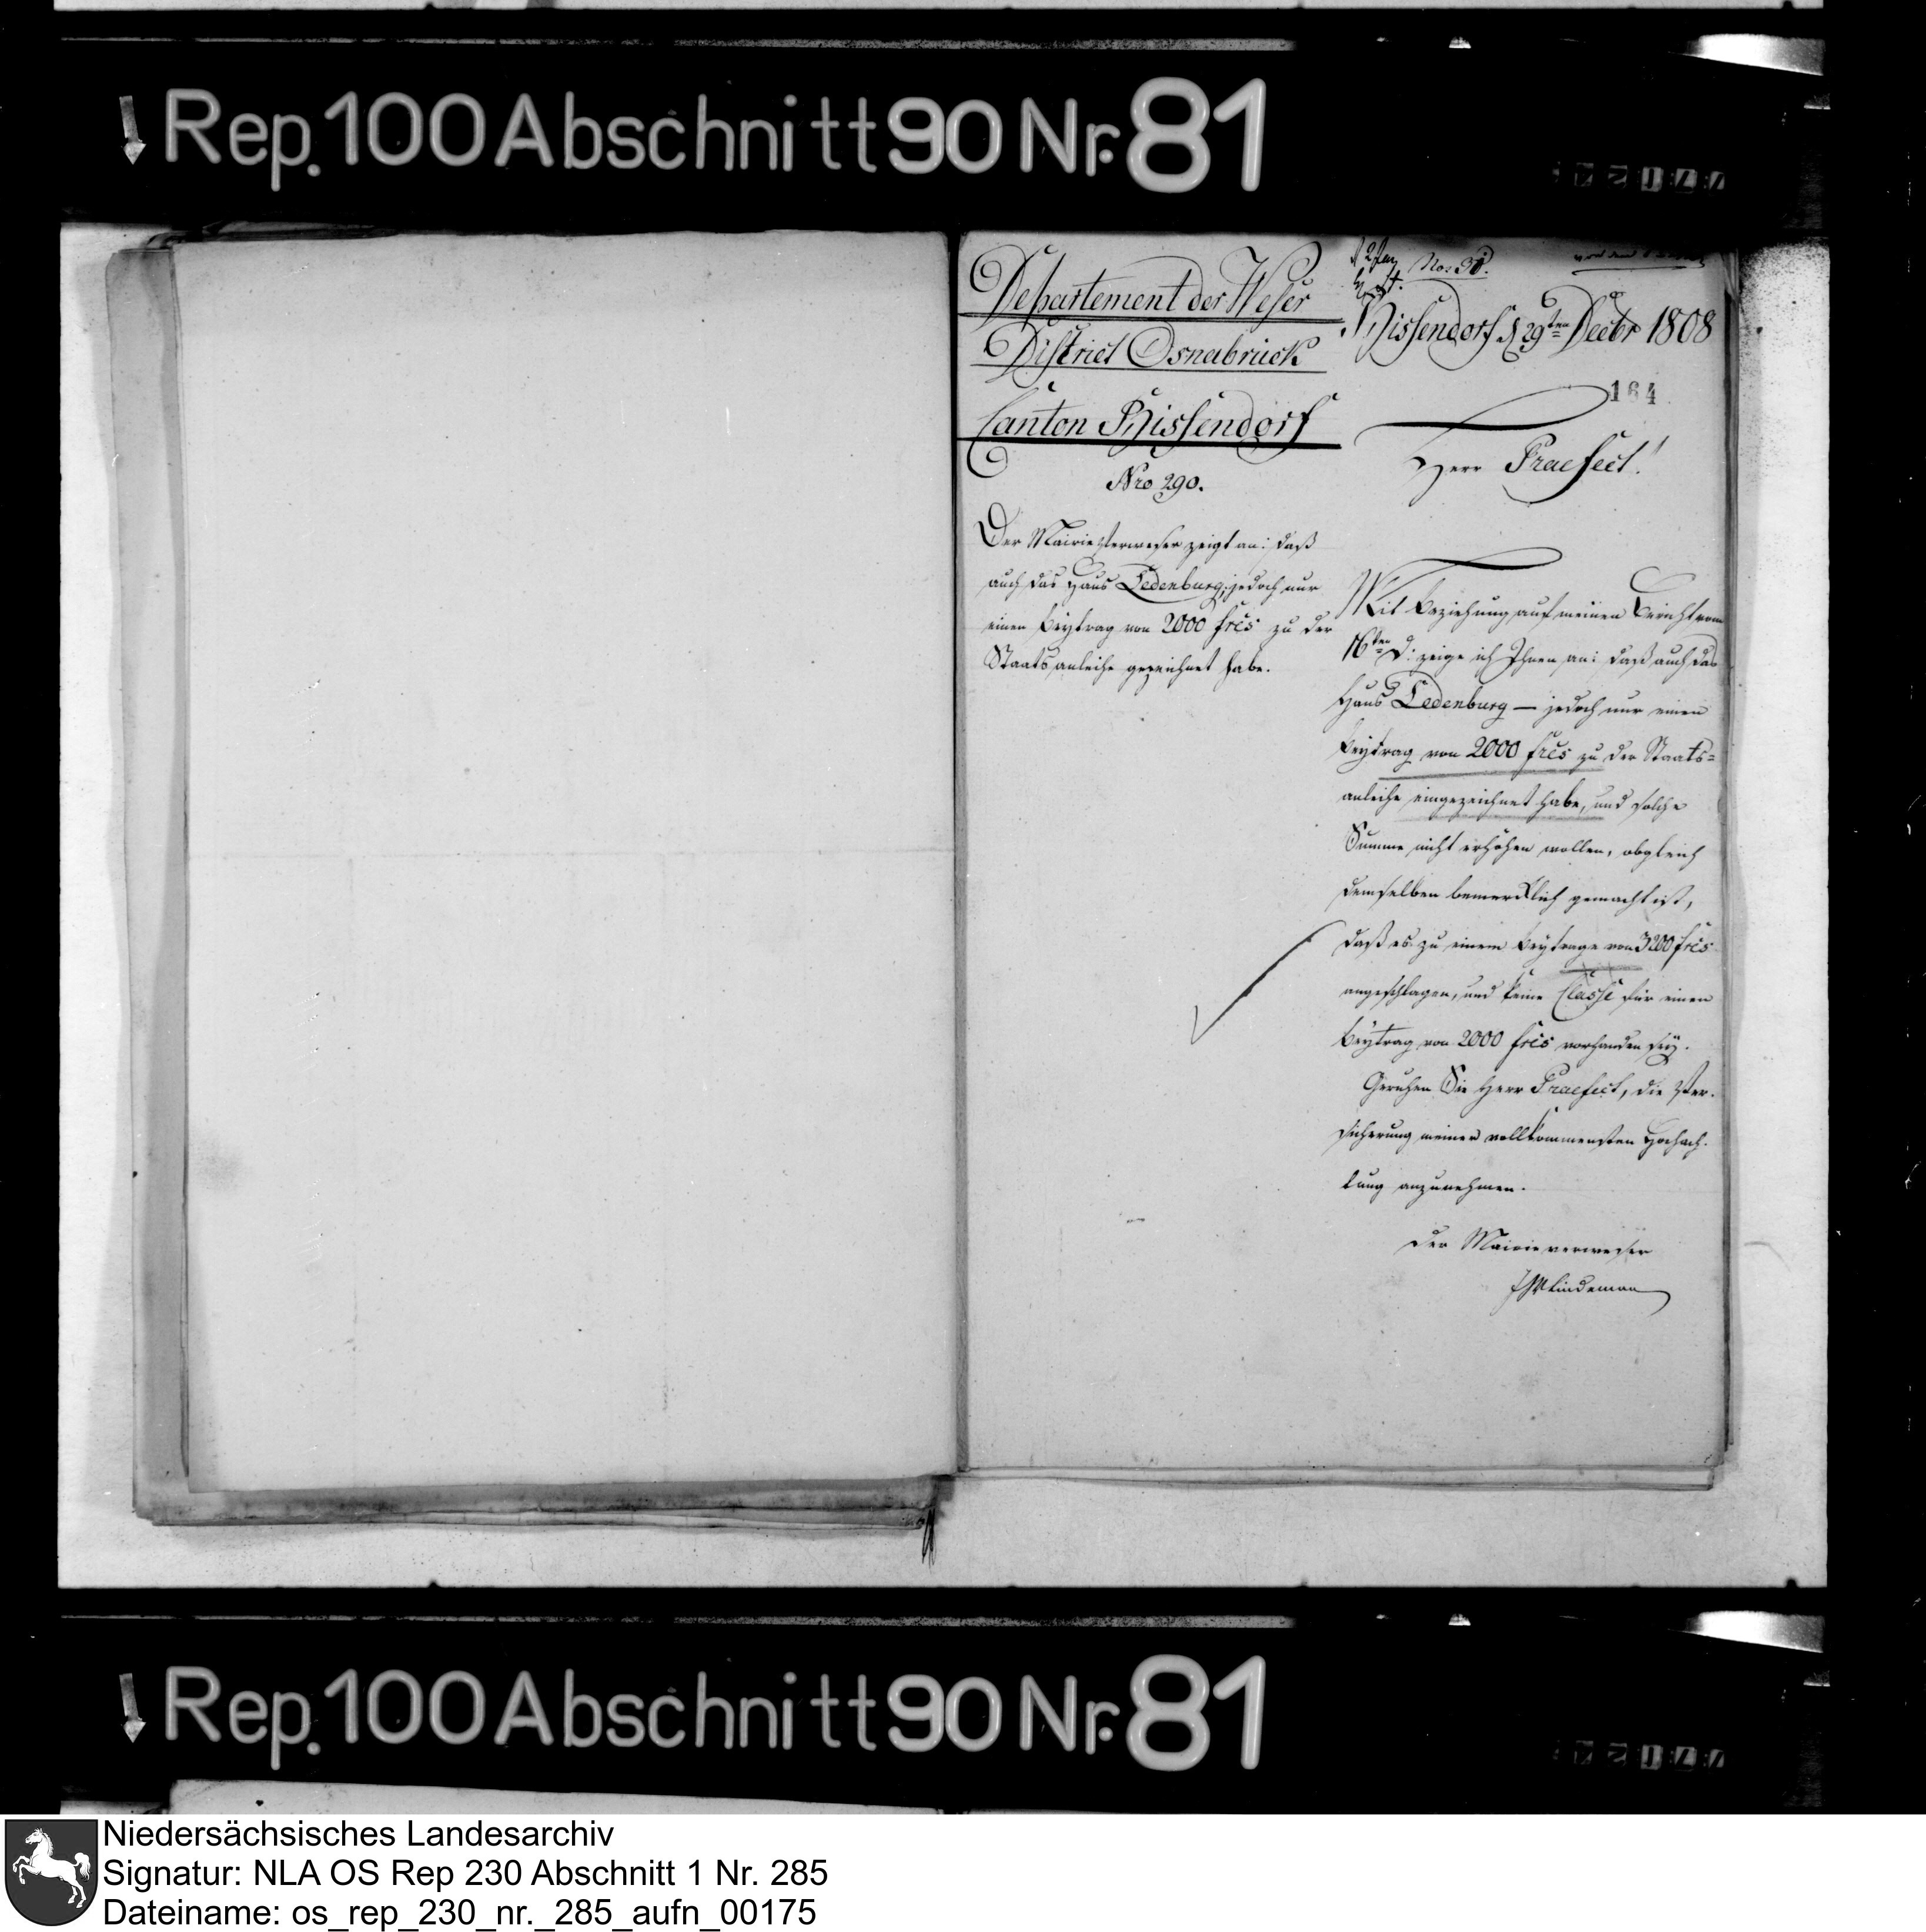 Rep. 100 Abschnitt 90 Nr. 81
Departement der Weser
District Osnabrück
Canton Bissendorf
Nro 290.
Der Mairieverweser zeigt an: daß
auch das Haus Ledenburg, jedoch nur
einen Beytrag von 2000 frcs zu der
Staatsanleihe gezeichnet habe.
Nro 30.
Bissendorf d 29ten Decbr 1808
164
Herr Praefect!
Mit Beziehung auf meinen Bericht vom
16ten d: zeige ich Ihnen an: daß auch das
Haus Ledenburg — jedoch nur einen
Beytrag von 2000 frcs zu der Staats=
anleihe eingezeichnet habe, und solche
Summe nicht erhöhen wollen, obgleich
demselben bemerklich gemacht ist,
daß es zu einem Beytrage von 3200 frcs
angeschlagen, und keine Classe für einen
Beytrag von 2000 frcs vorhanden sey.
Geruhen Sie Herr Praefect, die Ver-
sicherung meiner vollkommensten Hochach-
tung anzunehmen.
Der Mairieverweser
Lindeman
Rep. 100 Abschnitt 90 Nr. 81
Niedersächsisches Landesarchiv
Signatur: NLA OS Rep 230 Abschnitt 1 Nr. 285
Dateiname: os_rep_230_nr._285_aufn_00175